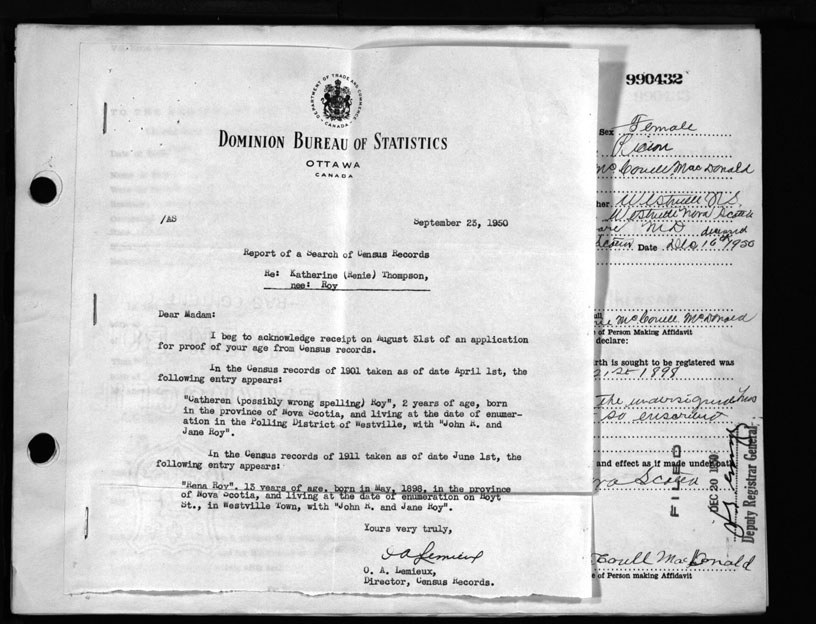 DEPARTMENT OF TRADE AND COMMERCE
CANADA
DOMINION BUREAU OF STATISTICS
OTTAWA
CANADA
/AS
September 23, 1950
Report of a Search of Census Records
Re: Katherine (Renie) Thompson,
nee: Roy
Dear Madam:
I beg to acknowledge receipt on August 31st of an application
for proof of your age from Census records.
In the Census records of 1901 taken as of date April 1st, the
following entry appears:
"Catheren (possibly wrong spelling) Roy", 2 years of age, born
in the province of Nova Scotia, and living at the date of enumer-
ation in the Polling District of Westville, with "John R. and
Jane Roy".
In the Census records of 1911 taken as of date June 1st, the
following entry appears:
"Rena Roy", 13 years of age, born in May, 1898, in the province
of Nova Scotia, and living at the date of enumeration on Hoyt
St., in Westville Town, with "John R. and Jane Roy".
Yours very truly,
O A Lemieux
O. A. Lemieux,
Director, Census Records.
990432
Sex Female
MacDonald
her Westville N.S.
Westville Nova Scotia
M D
Date Dec 16th 1950
McDonald
e of Person Making Affidavit
declare:
irth is sought to be registered was
1898
The undersigned has
so
and effect as if made under oath
Scotia
FILED
DEC 20 1950
Deputy Registrar General
MacDonald
e of Person making Affidavit